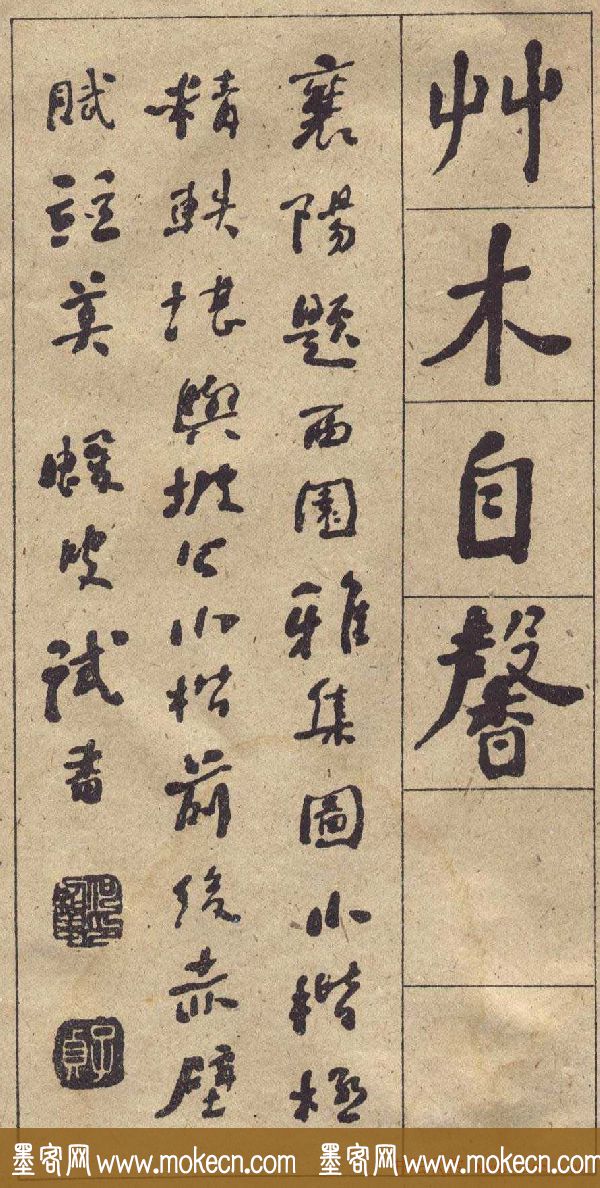 艸木自馨
襄陽題西園雅集圖小楷極
精軼堪與坡公小楷前後赤壁
賦 蝯叟試書
何紹基印
子貞
墨客网 www.mokecn.com 墨客网 www.mokecn.com